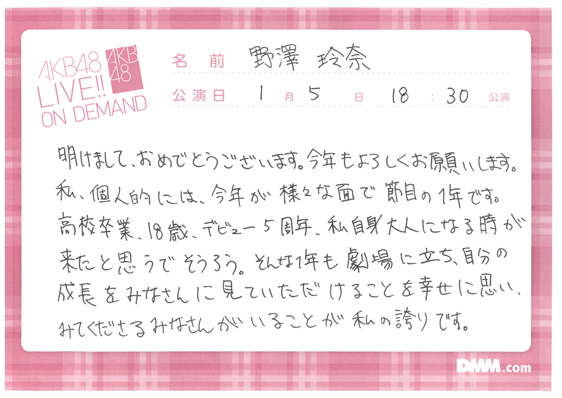 AKB48
LIVE!!
ON DEMAND
AKB
48
名 前 野澤 玲奈
公演日 1月 5日 18:30 公演
明けまして、おめでとうございます。今年もよろしくお願いします。
私、個人的には、今年が様々な面で節目の1年です。
高校卒業、18歳、デビュー5周年、私自身大人になる時が
来たと思うでそうろう。そんな1年も劇場に立ち、自分の
成長をみなさんに見ていただけることを幸せに思い、
みてくださるみなさんがいることが私の誇りです。
DMM.com